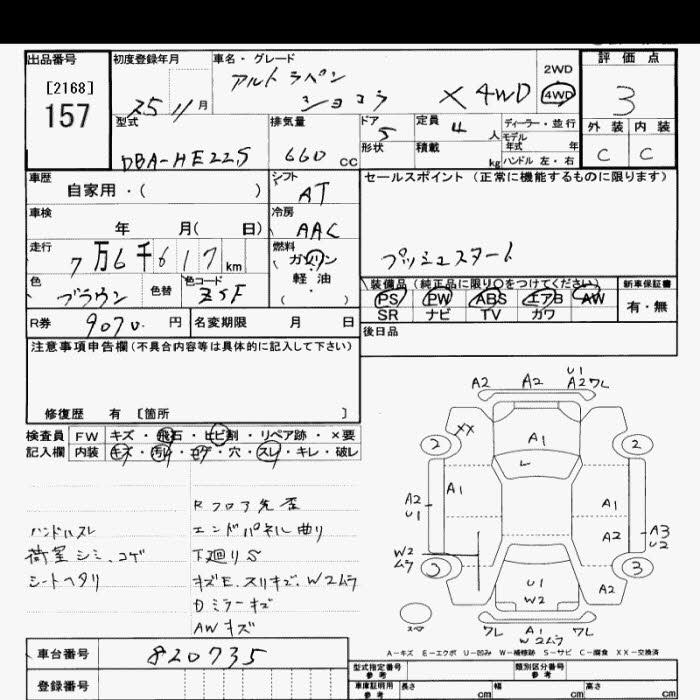 出品番号
[2168]
157
初度登録年月
25 11 月
車名・グレード
アルトラパン
ショコラ X 4WD
2WD
4WD
評価点
3
外装 内装
C C
型式
DBA-HE22S
排気量
660 cc
ドア
5
形状
定員
4 人
積載
kg
ディーラー・並行
モデル
年式 年
ハンドル 左・右
車歴
自家用・( )
シフト
AT
セールスポイント(正常に機能するものに限ります)
プッシュスタート
車検
年 月( 日)
冷房
AAC
走行
7万6千617km
燃料
ガソリン
軽油
( ・ )
色
ブラウン
色替
色コード
ZSF
装備品(純正品に限り○をつけてください)
PS PW ABS エアB AW
SR ナビ TV カワ
新車保証書
有・無
R券
9070. 円
名変期限 月 日
後日品
注意事項申告欄(不具合内容等は具体的に記入して下さい)
修復歴 有 [箇所 ]
検査員
記入欄
FW キズ・飛石・ヒビ割・リペア跡・×要
内装 キズ・汚レ・コゲ・穴・スレ・キレ・破レ
ハンドルスレ
荷室シミ、コゲ
シートヘタリ
Rフロア先歪
エンドパネル曲り
下廻りS
キズE、スリキズ、W2ムラ
Dミラーキズ
AWキズ
A2 A2 U1
A2ワレ
2 XX A1 2
レ
A2
U1
A1 A1
A2 A3
U2
W2
ムラ
3 U1
W2 A2 3
スペア
ワレ A1 ワレ
W2ムラ
A-キズ E-エクボ U-凹み W-補修跡 S-サビ C-腐食 XX-交換済
車台番号
820735
登録番号
型式指定番号
参考
類別区分番号
参考
車庫証明用
参考
長さ cm 幅 cm 高さ cm